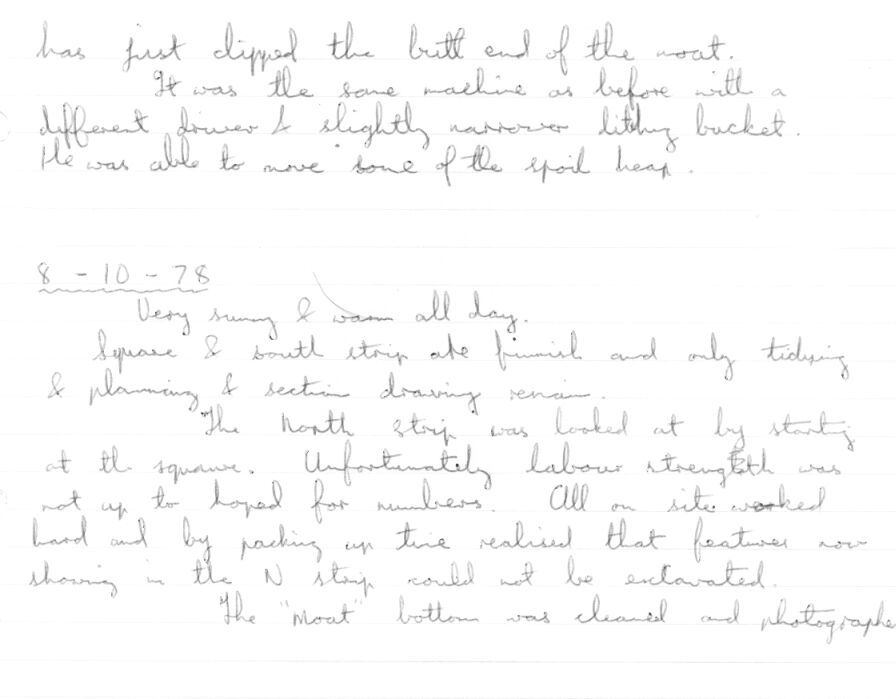 has just clipped the butt end of the moat.
It was the same machine as before with a
different driver & slightly narrower ditching bucket.
He was able to move some of the spoil heap.
8 - 10 - 78
Very sunny & warm all day.
Square & south strip are finnish and only tidying
& planning & section drawing remain.
The North strip was looked at by starting
at the square. Unfortunately labour strength was
not up to hoped for numbers. All on site worked
hard and by packing up time realised that features now
showing in the N strip could not be exclavated.
The "Moat" bottom was cleaned and photographe